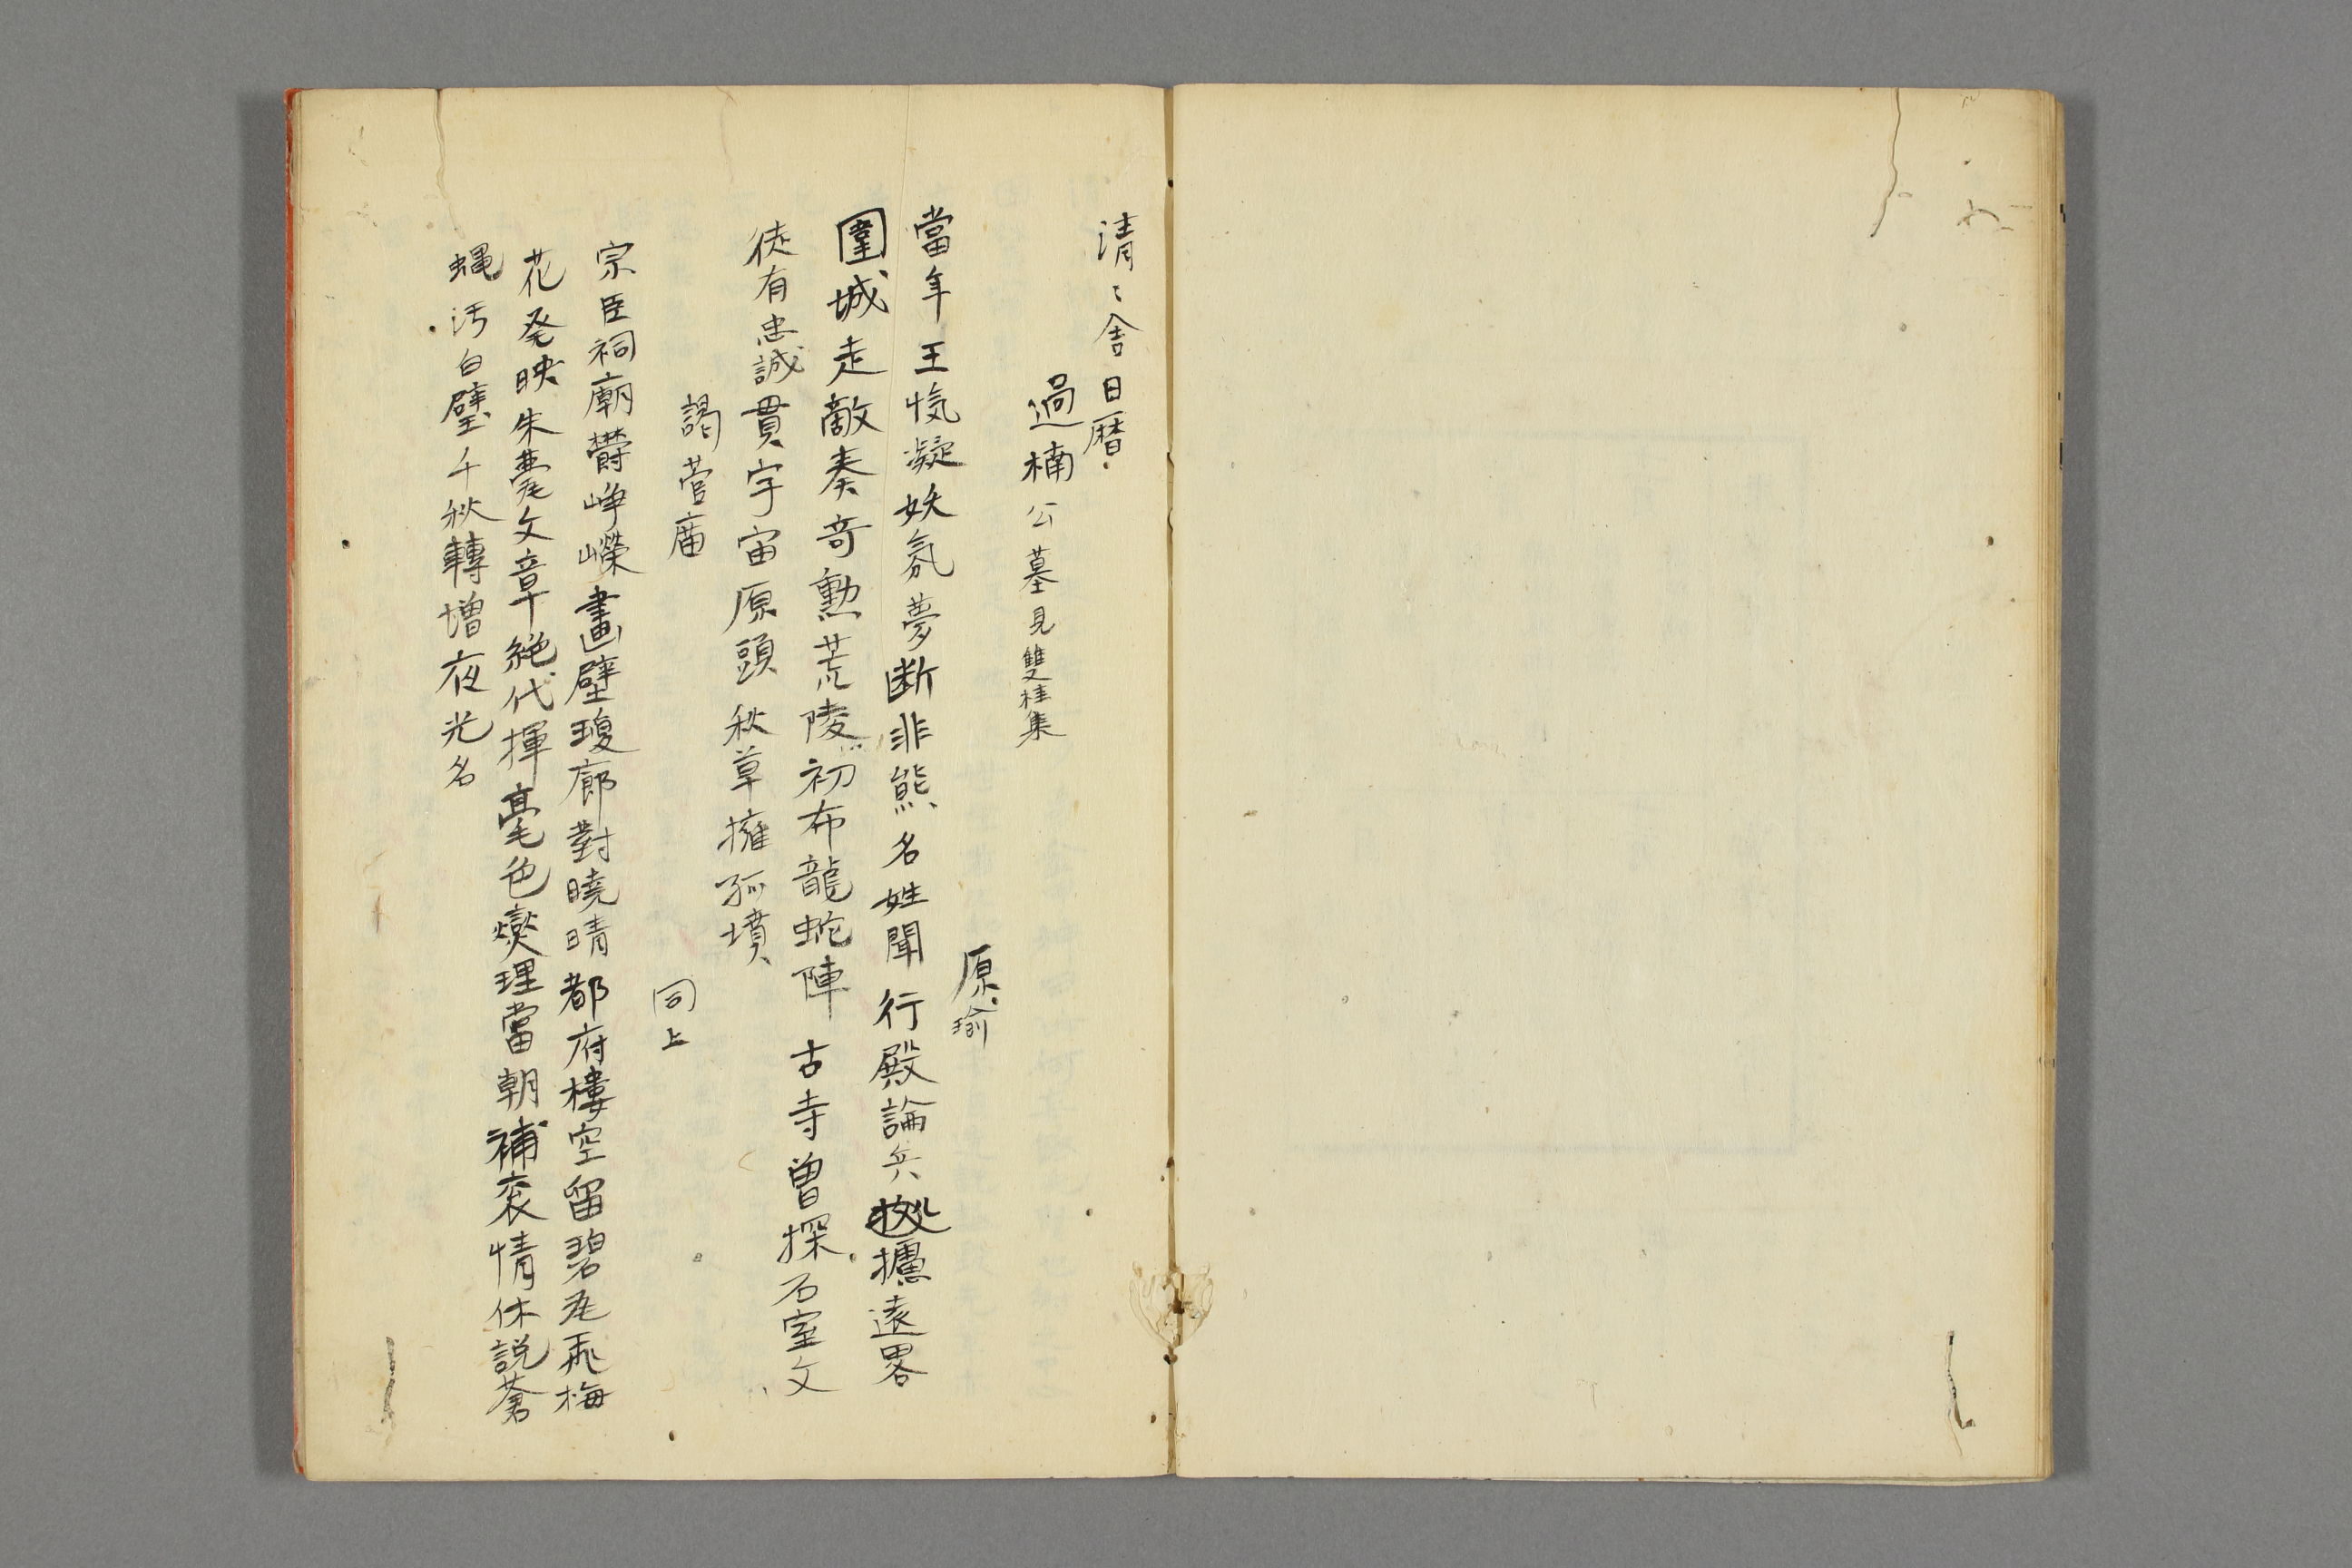 清〻舎日暦
過楠公墓見雙桂集
原瑜
當年王愾凝妖氛夢断非熊名姓聞行殿論兵攄遠畧
圍城走敵奏奇勲荒陵初布龍蛇陣古寺曽探石室文
徒有忠誠貫宇宙原頭秋草擁孤墳
謁菅廟
同上
宗臣祠廟欝崢嶸畫壁瓊廊對曉晴都府樓空留碧瓦飛梅
花発映朱甍文章絶代揮毫色燮理當朝補衮情休説蒼
蝿汚白璧千秋轉増夜光名